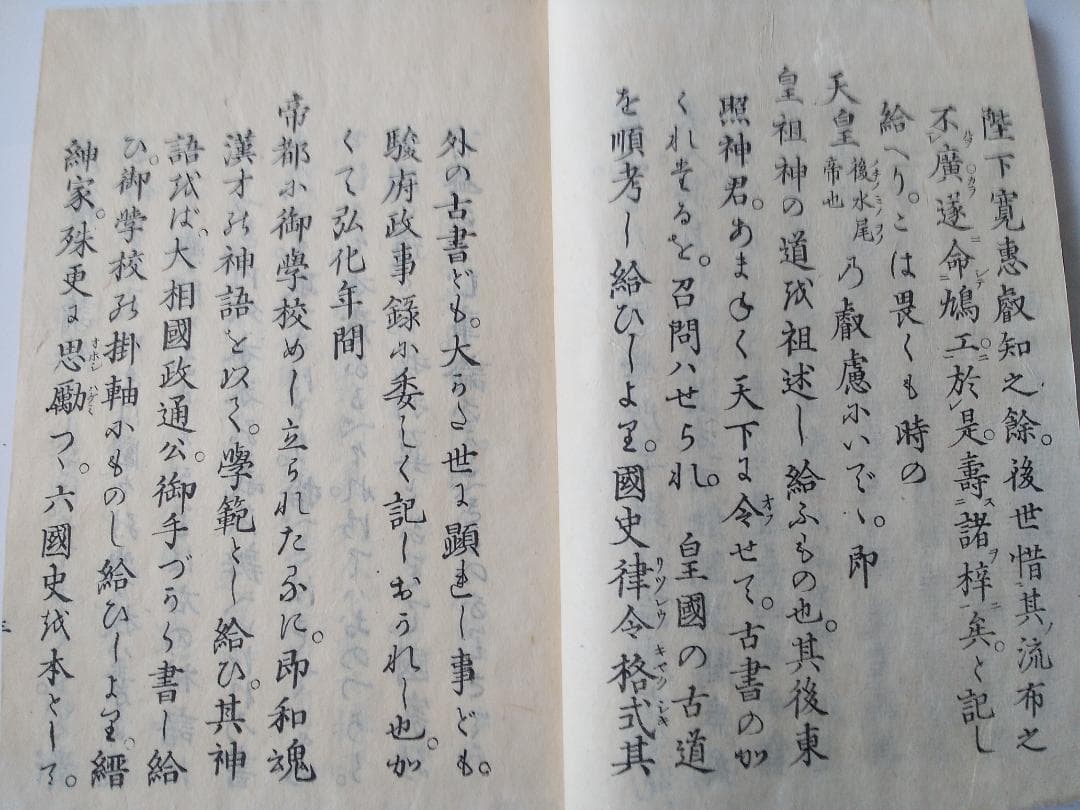 陛下寛惠叡知之餘。後世惜其ノ流布之
不廣ハタカラ。遂ニ命ニシテ鳩工ニ於是。壽ス諸ヲ梓ニ矣。と記し
給へり。こは畏くも時の
天皇後水尾帝也チノミノヲノ乃叡慮小いでゝ。即
皇祖神の道越祖述し給ふもの也。其後東
照神君。あまねく天下に令オフせて。古書のか
くれたるを。召問ハせられ。皇國の古道
を順考し給ひしより。國史律令格式リツレウキヤクシキ其
外の古書ども。大かた世に顕れし事ども。
駿府政事錄小委しく記しおかれし也。か
くて弘化年間
帝都小御學校めし立られたるに。即和魂
漢才の神語を以て。學範とし給ひ。其神
語をば。大相國政通公。御手づから書し給
ひ。御學校の掛軸小ものし給ひしより。縉
紳家。殊更に思勵オホシハゲミつゝ。六國史越本として。
三